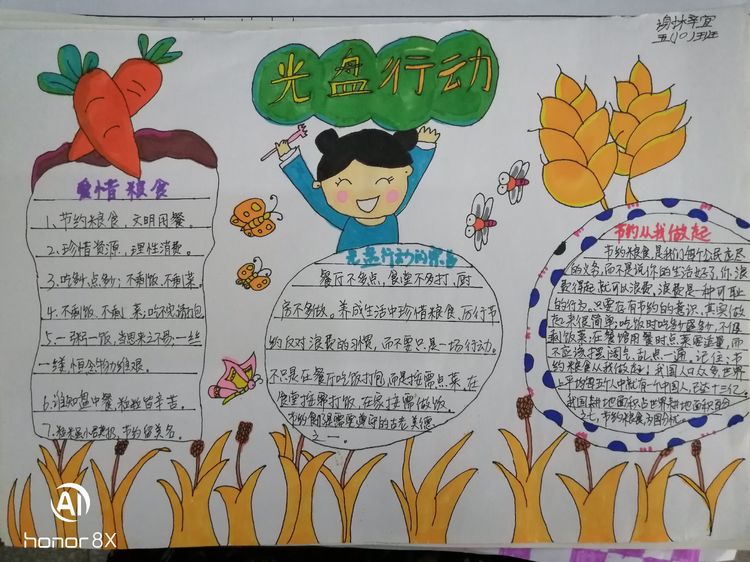 五(10)班
光盘行动
爱惜粮食
1、节约粮食，文明用餐。
2、珍惜资源，理性消费。
3、吃多少，点多少；不剩饭，不剩菜。
4、不剩饭、不剩菜；吃不完请打包
5、一粥一饭，当思来之不易；一丝
一缕恒念物力维艰。
6、谁知盘中餐，粒粒皆辛苦。
节约留美名。
光盘行动的
餐厅不多点，食堂不多打，厨
房不多做。养成生活中珍惜粮食，厉行节
约反对浪费的习惯，而不要只是一场行动。
不只是在餐厅吃饭打包，而是按需点菜，在
食堂按需打饭，在家按需做饭。
之一。
节约从我做起
节约粮食，是我们每个公民应尽
的义务，而不是说你的生活好了，你
浪费得起就可以浪费，浪费是一种可耻
的行为。只要存有节约的意识，其实做
起来很简单：吃饭时吃多少盛多少，不
剩饭菜；在餐馆用餐时点菜要适量，而
不应该摆阔气，乱点一通。记住：节
约粮食从我做起！我国人口众多，世界
上平均每五个人中就有一个中国人，
我国耕地面积占世界耕地面积
AI
honor 8X